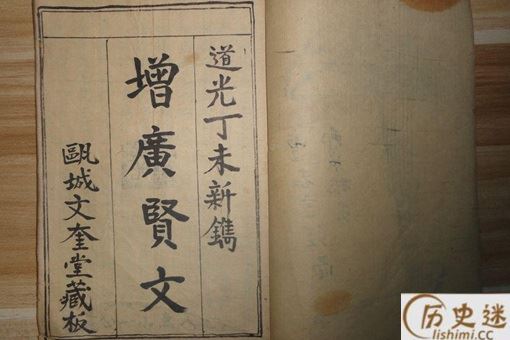 道光丁未新鐫
增廣賢文
甌城文奎堂藏板
历史迷
lishimi.cc